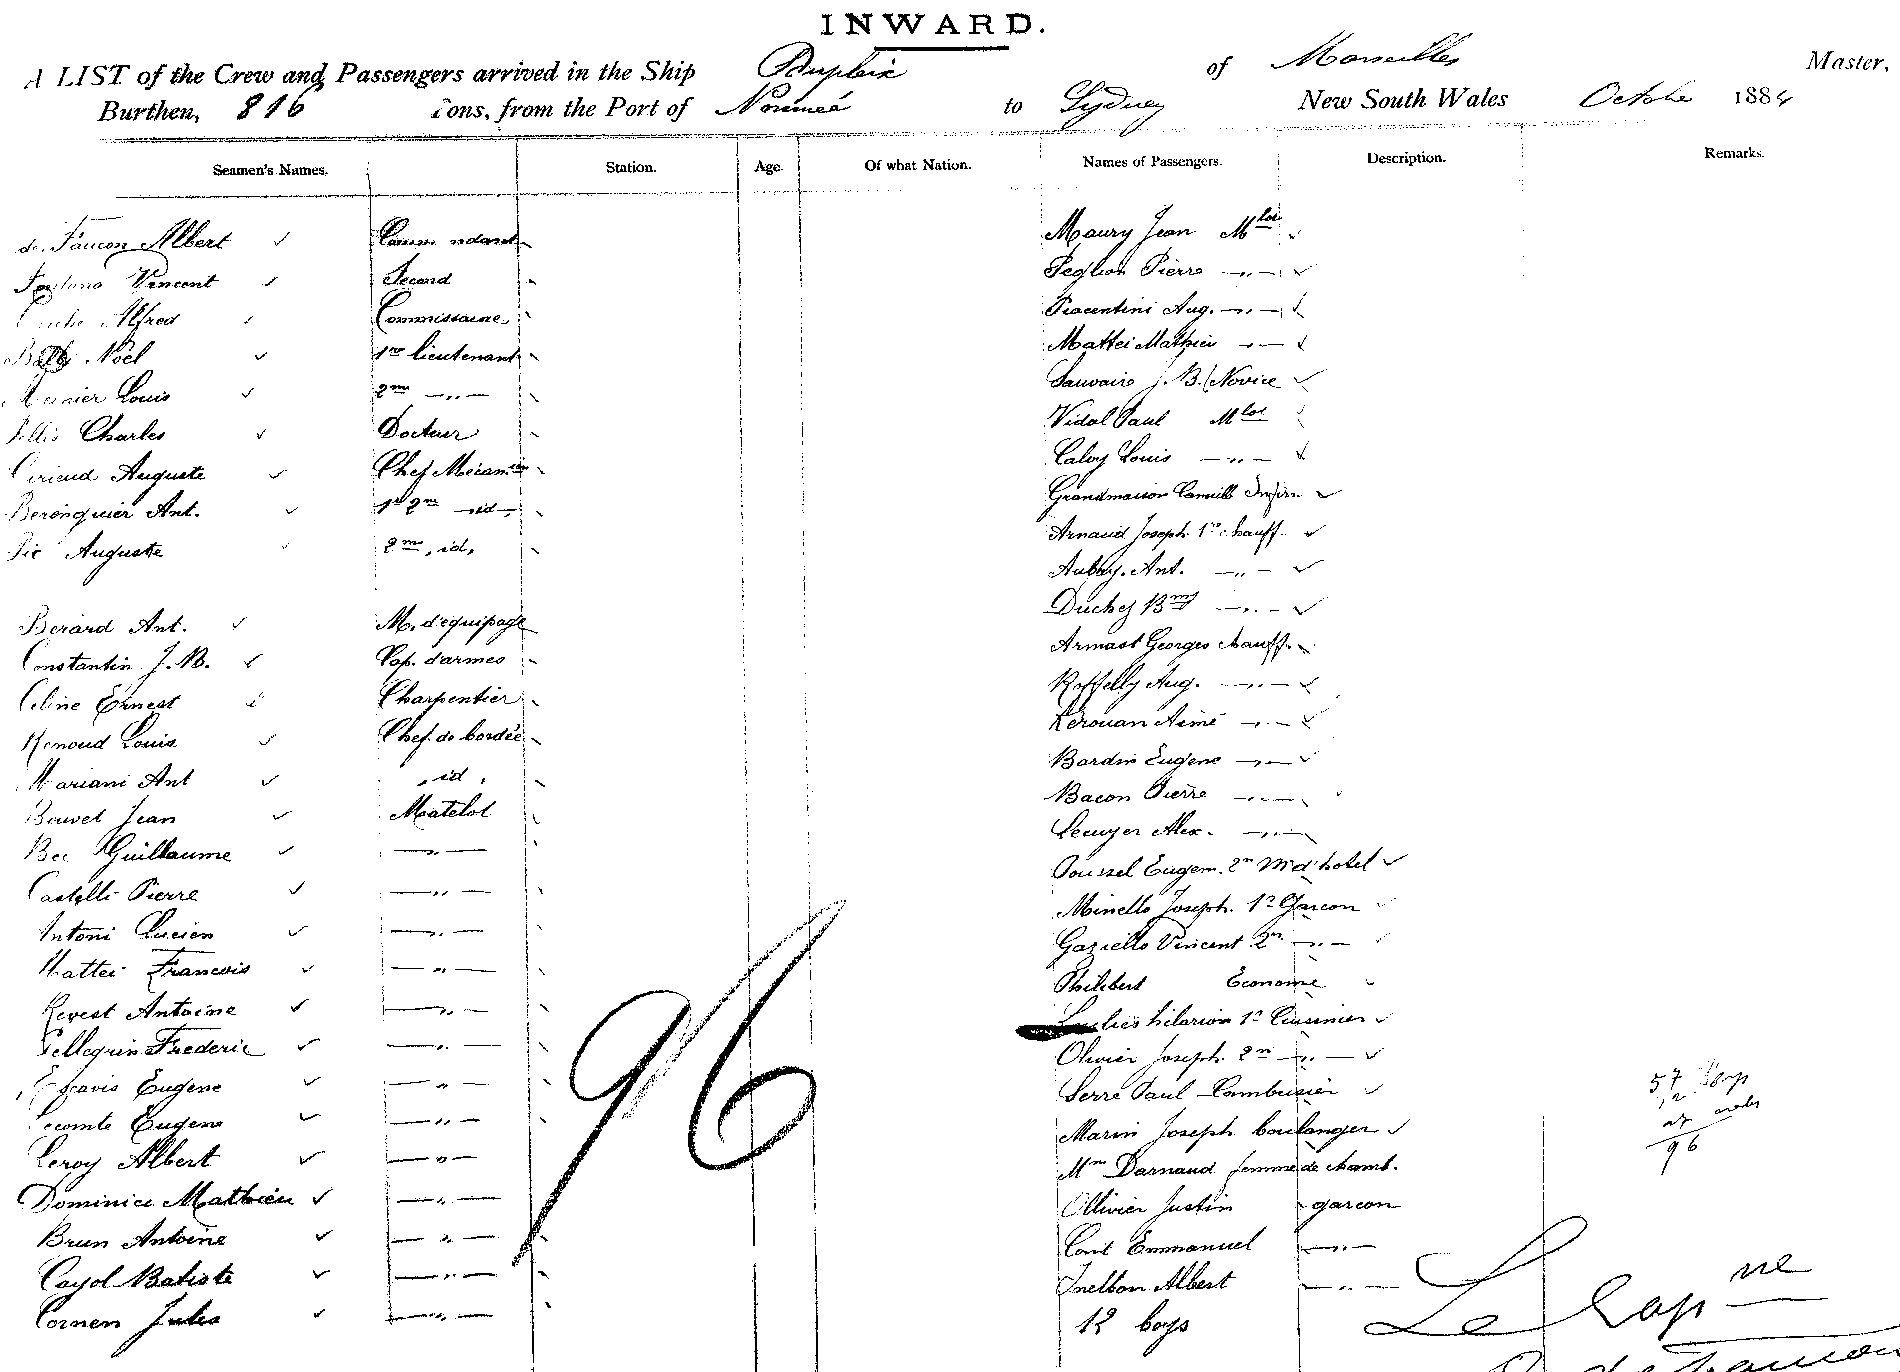 INWARD.
A LIST of the Crew and Passengers arrived in the Ship Dupleix of Marseilles Master,
Burthen, 816 Tons, from the Port of Nouméa to Sydney New South Wales Octobe 1884
Seamen's Names. Station. Age. Of what Nation. Names of Passengers. Description. Remarks.
de Faucon Albert Commandant
Vincent Second
Alfred Commissaire
Noël 1er lieutenant
Louis 2me —„—
Charles Docteur
Auguste Chef Mécan
Berenguier Ant. 2me id
Pic Auguste 2me, id,
Berard Ant. M. d'équipage
Constantin J. B. Cap. d'armes
Celine Ernest Charpentier
Renoud Louis Chef de bordée
Mariani Ant , id ,
Bouvet Jean Matelot
Bec Guillaume —„—
Castelli Pierre —„—
Antoni Lucien —„—
Mattei Francois —„—
Revest Antoine —„—
Pellegrin Frederic —„—
Eugene —„—
Lecomte Eugene —„—
Leroy Albert —„—
Dominici Mathieu —„—
Brun Antoine —„—
Cayol Batiste —„—
Cornen Jules —„—
96
Maury Jean Mlot
Pierre —„—
Piacentini Aug. —„—
Mattei Mathieu —„—
Sauvaire J. B. Novice
Vidal Paul Mlot
Louis —„—
Grandmaison Camille Infirm
Arnaud Joseph 1er chauff.
Ant. —„—
Duchef —„—
Armast Georges chauff.
Aug. —„—
Kerouan Aimé —„—
Bardin Eugene —„—
Bacon Pierre —„—
Lecuyer Alex. —„—
Poussel Eugem. 2m M d'hotel
Minello Joseph. 1er Garcon
Gaziello Vincent 2m —„—
Philibert Econome
hilarion 1er Cuisinier
Olivier Joseph. 2m —„—
Serre Paul Cambusier
Marin Joseph boulanger
Mme Darnaud femme de chamb.
Ollivier Justin garcon
Emmanuel —„—
Albert —„—
12 boys
57
12
27
96
Le Cap ne